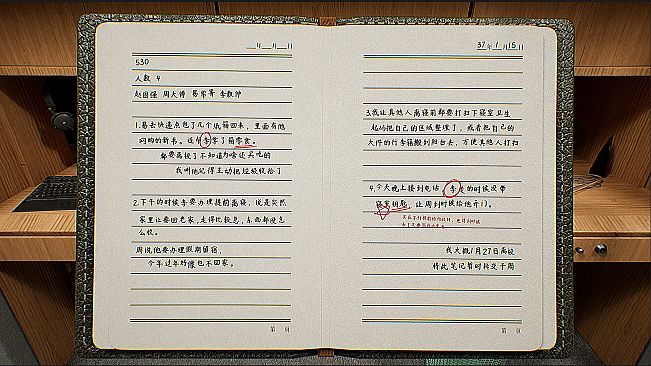 年 月 日
530
人数 4
赵国强 周大博 易常青 李毅帅
1.易去快递点包了几个纸箱回来，里面有他
网购的新书。还给李寄了箱零食。
都要离校了不知道为啥还买吃的
我叫他记得主动把垃圾收拾了
2.下午的时候李要办理提前离寝，说是突然
家里让要回老家，走得比较急，东西都没怎
么收。
周说他要办理假期留宿，
今年过年好像也不回家。
第 页
37年 1月 15日
3.我让其他人离寝前都要打扫下寝室卫生
起码把自己的区域整理了，或者把自己的
大件的行李箱搬到阳台去，方便其他人打扫
4.今天晚上接到电话，李走的时候没带
寝室钥匙，让周到时候给他开门。
我大概1月27日离校
将此笔记暂时转交于周
第 页